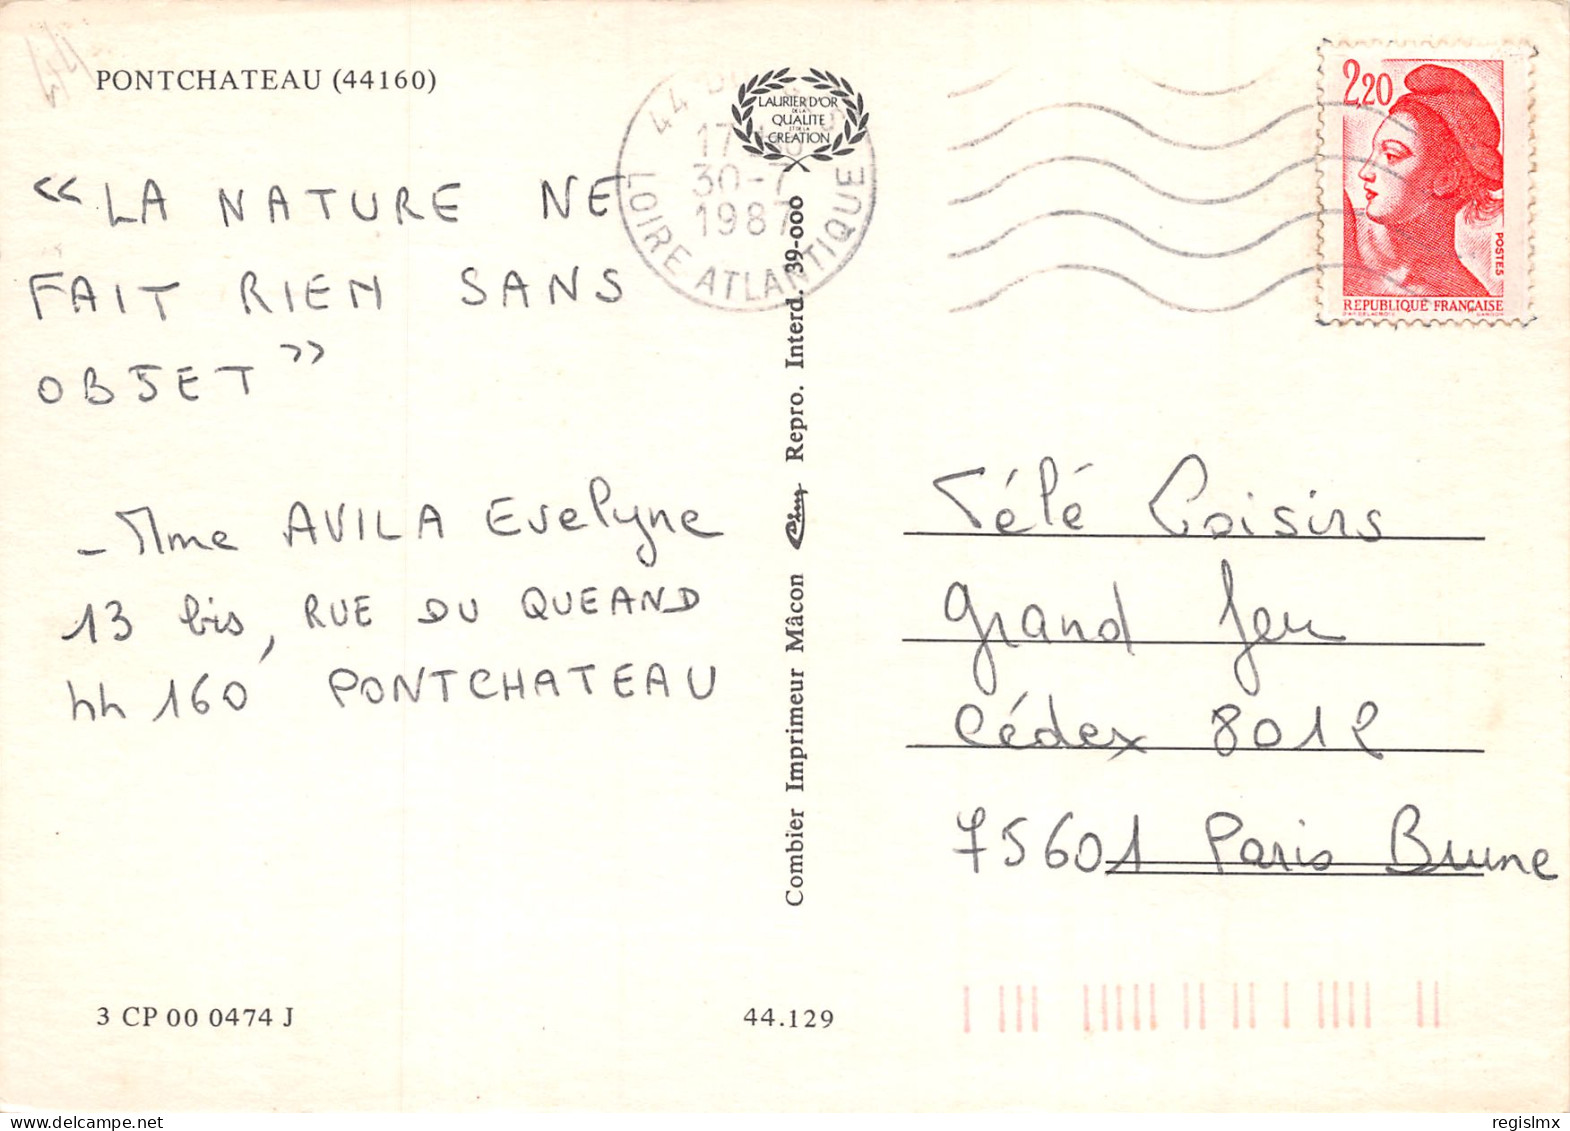 PONTCHATEAU (44160)
« LA NATURE NE
FAIT RIEN SANS
OBJET »
- Mme AVILA Evelyne
13 bis, RUE DU QUEAND
44 160 PONTCHATEAU
3 CP 00 0474 J
44.129
LAURIER D'OR
DE LA
QUALITE
ET DE LA
CREATION
44
17
30-7
1987
LOIRE ATLANTIQUE
Combier Imprimeur Mâcon Repro. Interd. 39-000
2,20
POSTES
REPUBLIQUE FRANÇAISE
Télé Loisirs
grand Jeu
Cédex 8012
75601 Paris Brune
44
regislmx